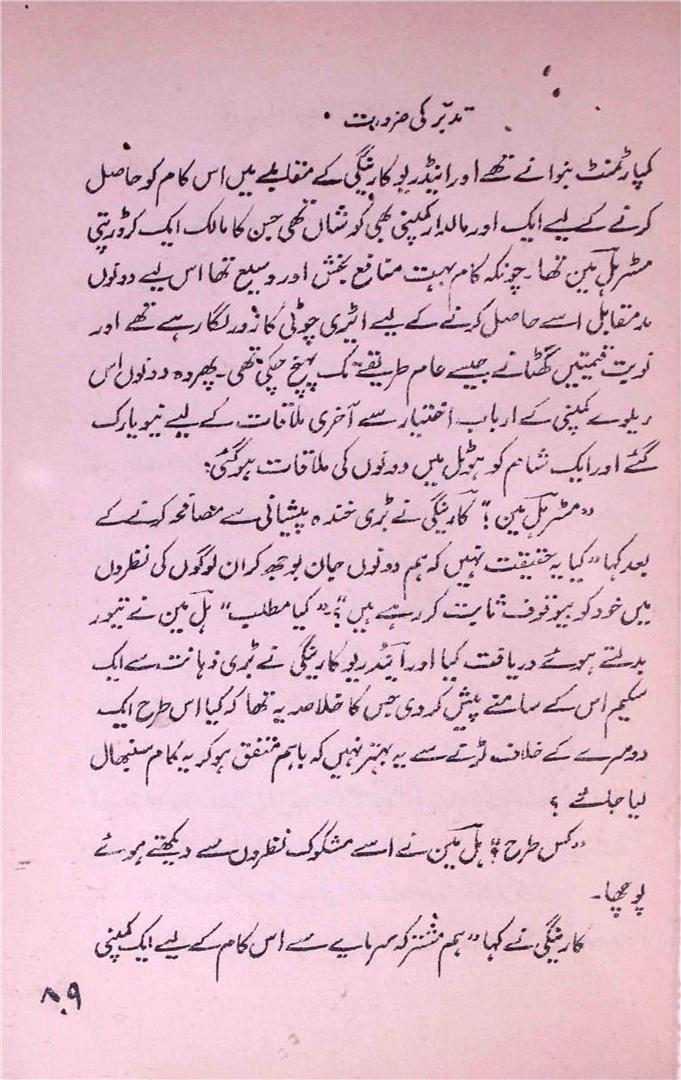 تدبّر کی ضرورت
کمپارٹمنٹ بنوانے تھے اور اینڈریو کارنیگی کے مقابلے میں اس کام کو حاصل
کرنے کے لیے ایک اور مالدار کمپنی بھی کوشاں تھی جس کا مالک ایک کروڑ پتی
مسٹر پل مین تھا۔ چونکہ کام بہت منافع بخش اور وسیع تھا اس لیے دونوں
مدمقابل اسے حاصل کرنے کے لیے ایڑی چوٹی کا زور لگا رہے تھے اور
نوبت قیمتیں گھٹانے جیسے عام طریقے تک پہنچ چکی تھی۔ پھر وہ دونوں اس
ریلوے کمپنی کے ارباب اختیار سے آخری ملاقات کے لیے نیویارک
گئے اور ایک شام کو ہوٹل میں دونوں کی ملاقات ہوگئی:
”مسٹر پل مین !“ کارنیگی نے بڑی خندہ پیشانی سے مصافحہ کرنے کے
بعد کہا ”کیا یہ حقیقت نہیں کہ ہم دونوں جان بوجھ کر ان لوگوں کی نظروں
میں خود کو بیوقوف ثابت کر رہے ہیں؟“ ”کیا مطلب“ پل مین نے تیور
بدلتے ہوئے دریافت کیا اور اینڈریو کارنیگی نے بڑی ذہانت سے ایک
سکیم اس کے سامنے پیش کر دی جس کا خلاصہ یہ تھا کہ کیا اس طرح ایک
دوسرے کے خلاف لڑنے سے یہ بہتر نہیں کہ باہم متفق ہو کر یہ کام سنبھال
لیا جائے ؟
”کس طرح ؟“ پل مین نے اسے مشکوک نظروں سے دیکھتے ہوئے
پوچھا۔
کارنیگی نے کہا ”ہم مشترکہ سرمایے سے اس کام کے لیے ایک کمپنی
۸۰۹